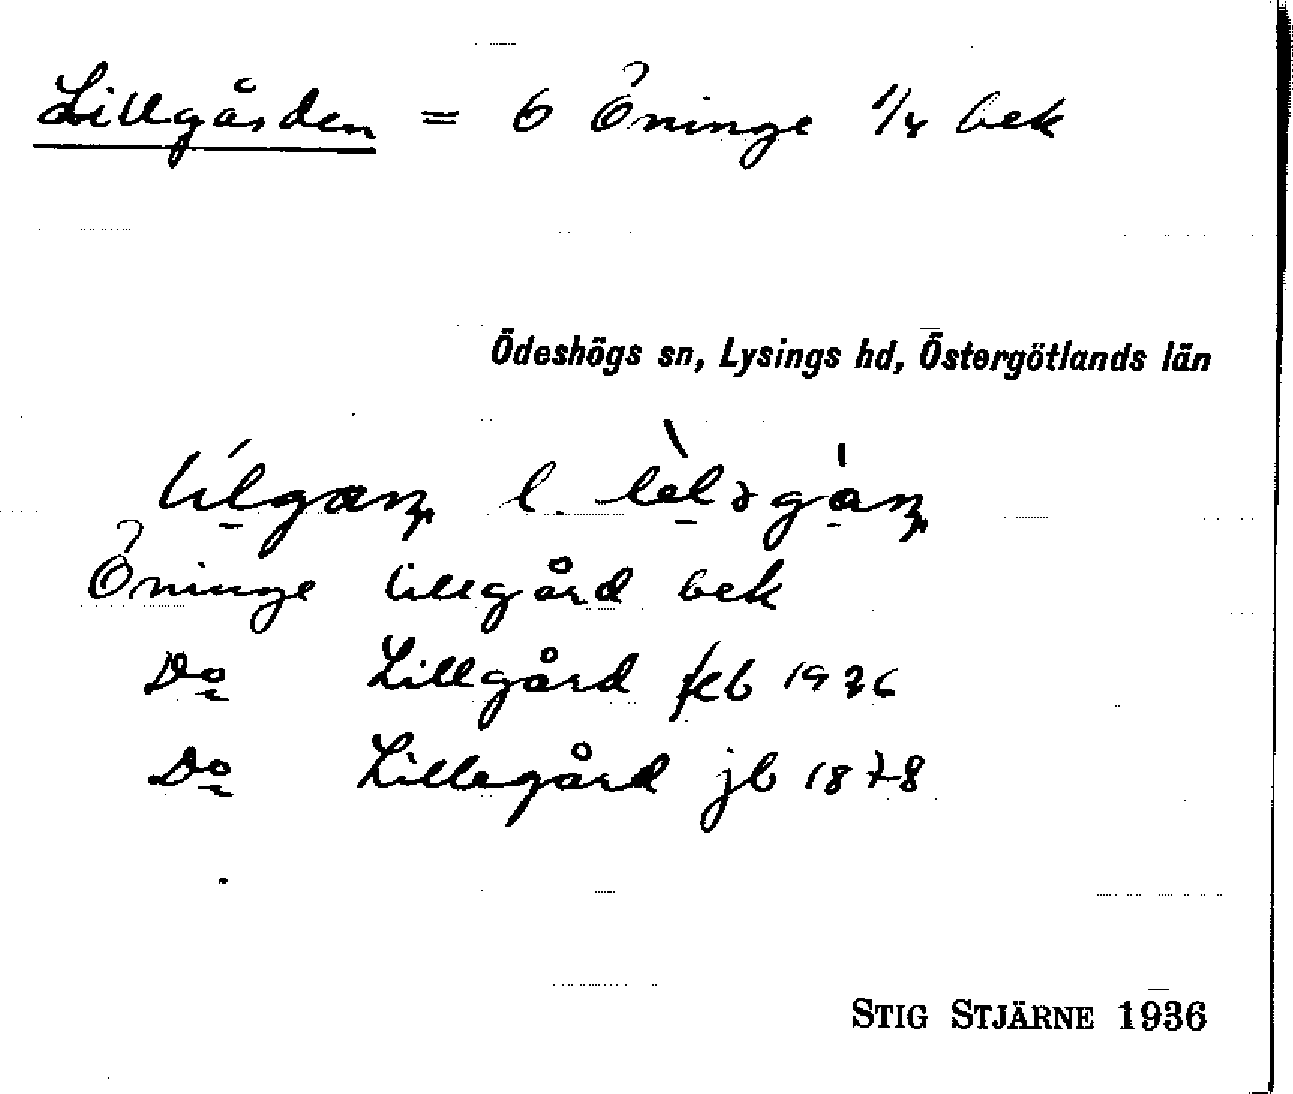 Lillgården = 6 Öninge 1/4 bek
Ödeshögs sn, Lysings hd, Östergötlands län
l.
Öninge lillgård bek
Do Lillgård feb 1926
Do Lillegård jb 1878
STIG STJÄRNE 1936